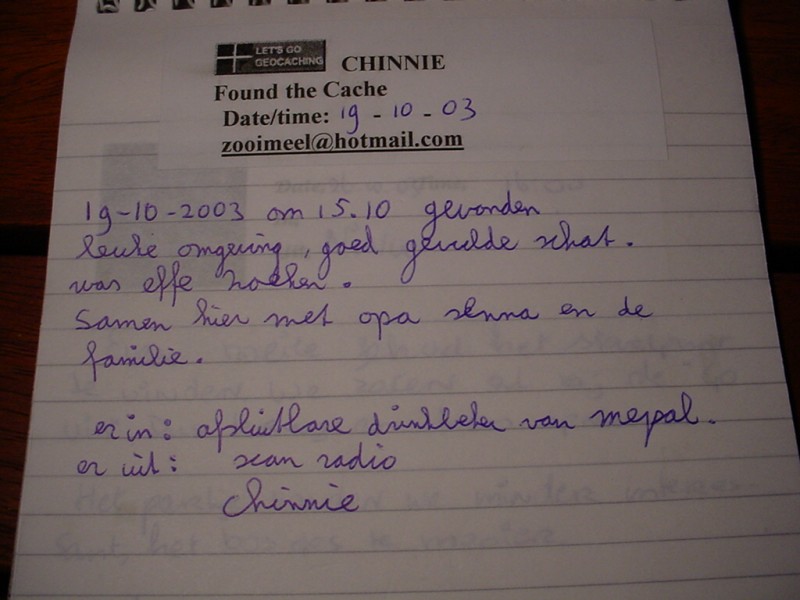 LET'S GO
GEOCACHING
CHINNIE
Found the Cache
Date/time: 19 - 10 - 03
zooimeel@hotmail.com
19-10-2003 om 15.10 gevonden
leuke omgeving, goed gevulde schat.
was effe zoeken.
Samen hier met opa senna en de
familie.
er in: afsluitbare drinkbeker van mepal.
er uit: scan radio
Chinnie